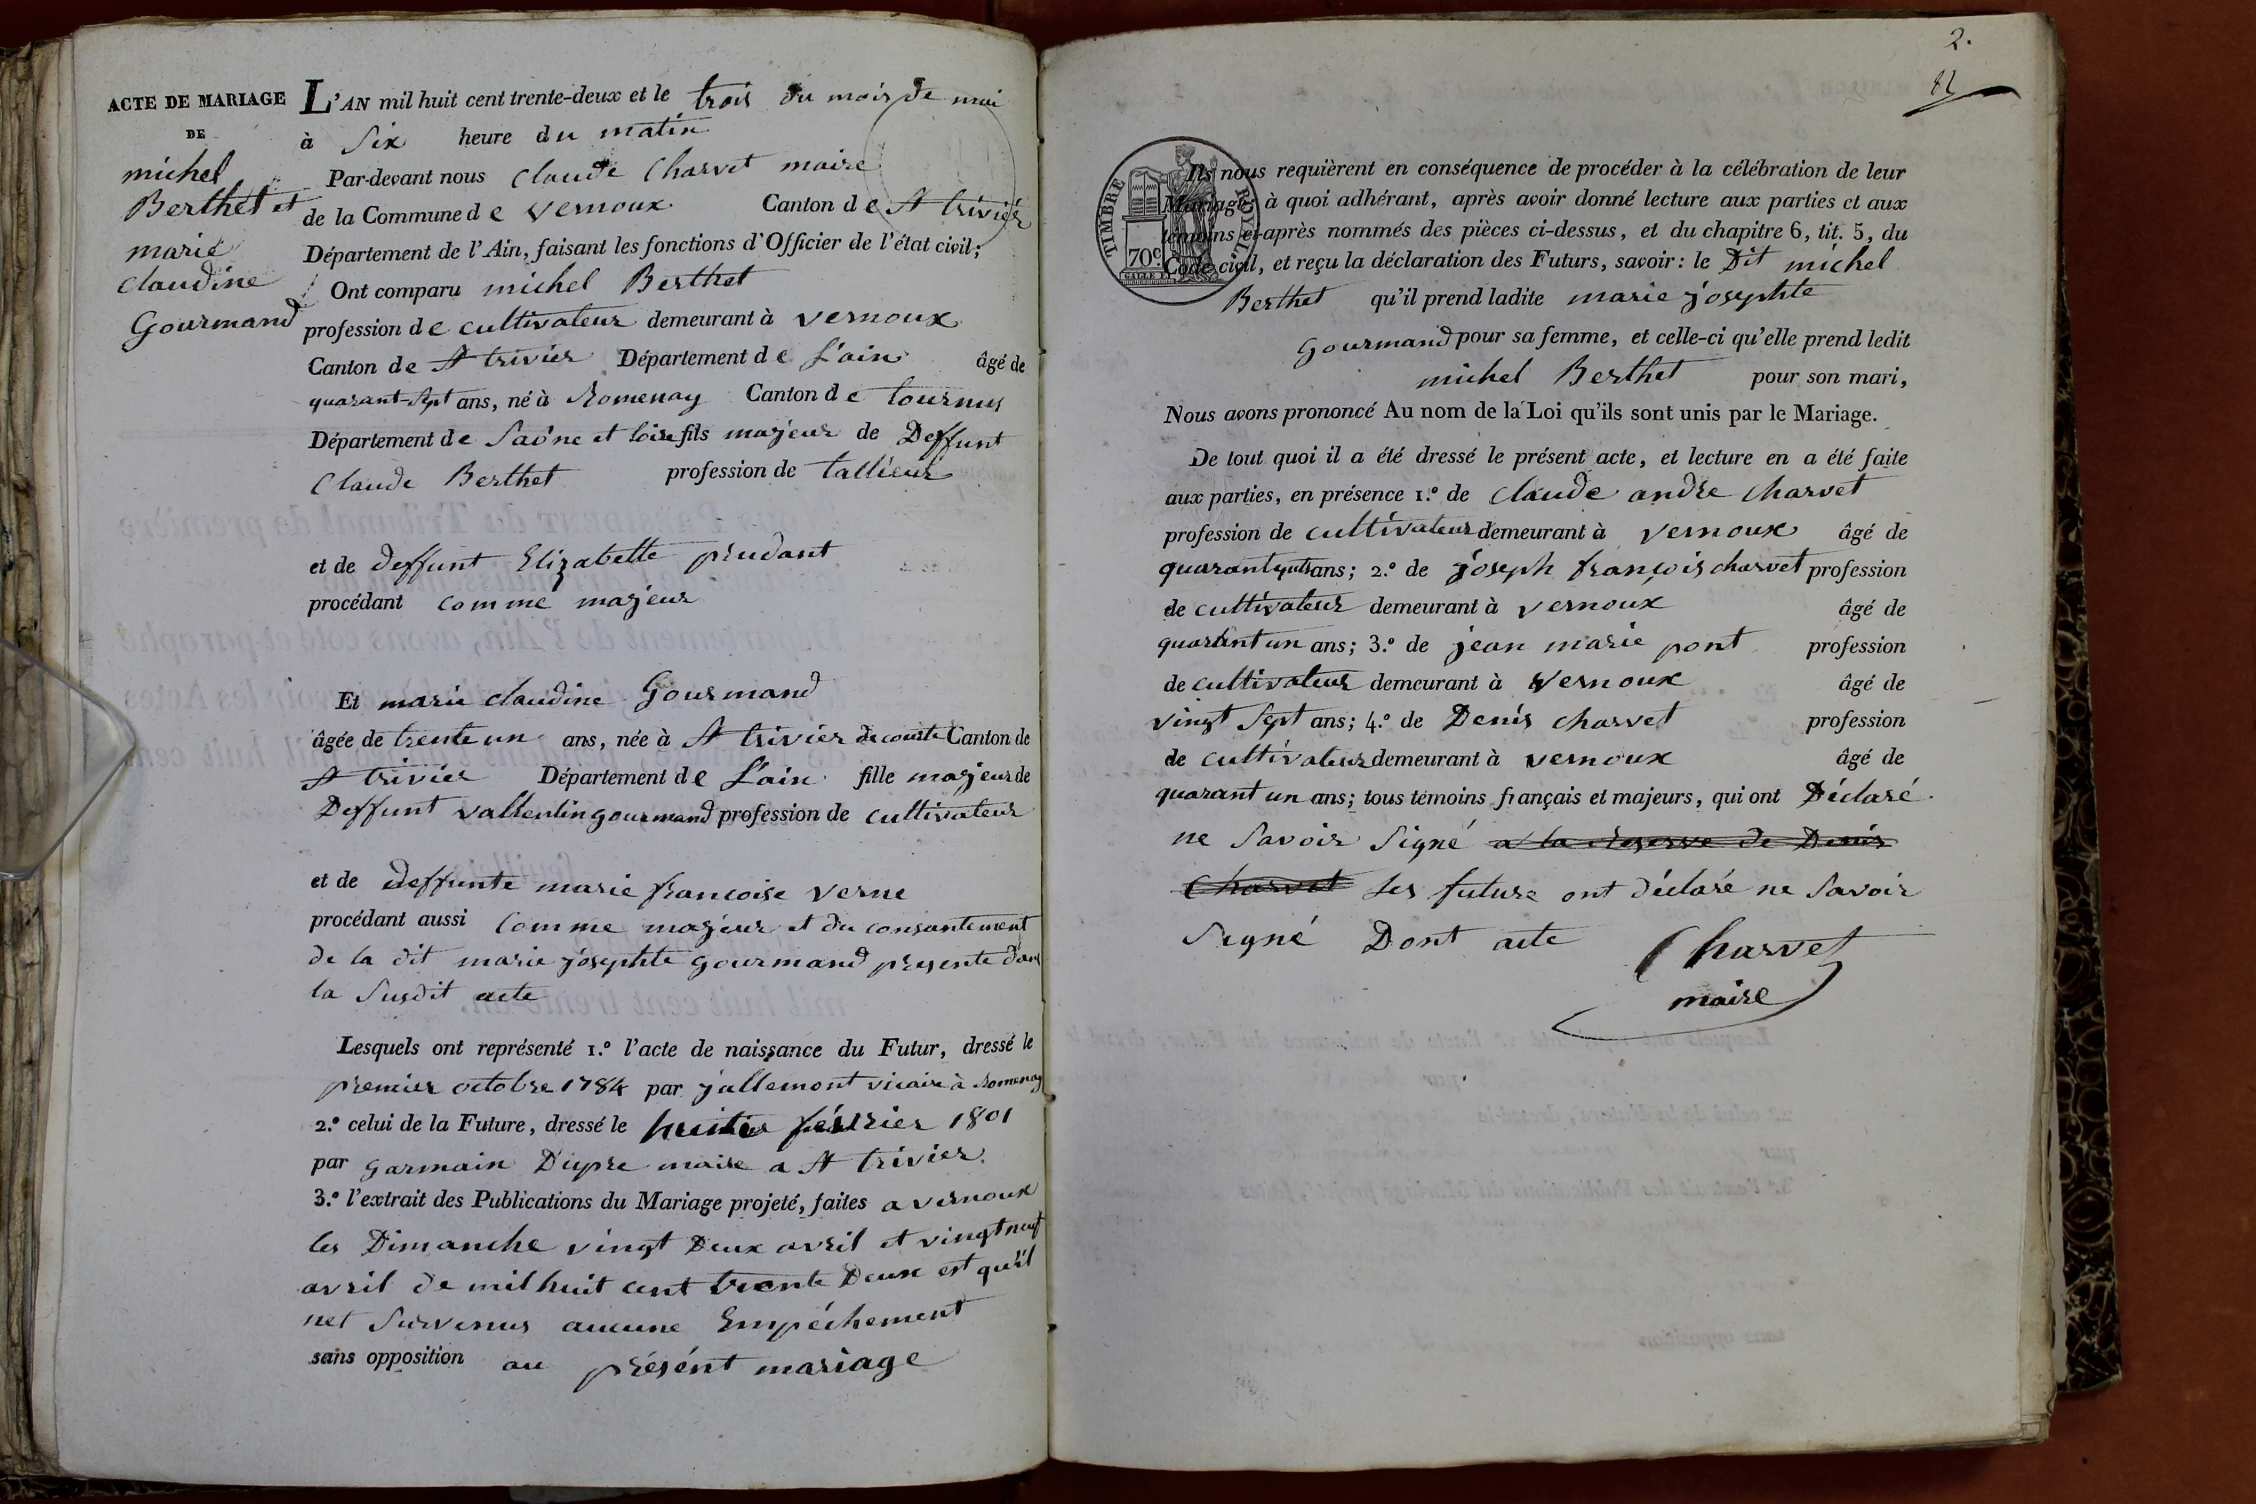 ACTE DE MARIAGE
DE
michel
Berthet et
marie
claudine
Gourmand
L'AN mil huit cent trente-deux et le trois du mois de mai
à Six heure du matin
Par-devant nous Claude Charvet maire
de la Commune de vernoux Canton de St trivier
Département de l'Ain, faisant les fonctions d'Officier de l'état civil;
Ont comparu michel Berthet
profession de cultivateur demeurant à vernoux
Canton de St trivier Département de L'ain âgé de
quarant-sept ans, né à Romenay Canton de tournus
Département de Saône et loire fils majeur de Deffunt
Claude Berthet profession de tallieur
et de deffunt Elizabette prudant
procédant comme majeur
Et marie claudine Gourmand
âgée de trente un ans, née à St trivier de courte Canton de
St trivier Département de L'ain fille majeur de
Deffunt vallentin gourmand profession de cultivateur
et de deffunte marie francoise verne
procédant aussi comme majeur et du consantement
de la dit marie josephte gourmand presente dans
la Susdit acte
Lesquels ont représenté 1.º l'acte de naissance du Futur, dressé le
premier octobre 1784 par jallemont vicaire à Romenay
2.º celui de la Future, dressé le huitier février 1801
par garmain Dupre maire a St trivier.
3.º l'extrait des Publications du Mariage projeté, faites a vernoux
les Dimanche vingt Deux avril et vingt neuf
avril de mil huit cent trente Deux est qu'il
net Survenus aucune Empéchement
sans opposition au présént mariage
2.
TIMBRE ROYAL
70 c
Ils nous requièrent en conséquence de procéder à la célébration de leur
Mariage, à quoi adhérant, après avoir donné lecture aux parties et aux
témoins ci-après nommés des pièces ci-dessus, et du chapitre 6, tit. 5, du
Code civil, et reçu la déclaration des Futurs, savoir: le Dit michel
Berthet qu'il prend ladite marie josephte
gourmand pour sa femme, et celle-ci qu'elle prend ledit
michel Berthet pour son mari,
Nous avons prononcé Au nom de la Loi qu'ils sont unis par le Mariage.
De tout quoi il a été dressé le présent acte, et lecture en a été faite
aux parties, en présence 1.º de claude andre charvet
profession de cultivateur demeurant à vernoux âgé de
ans; 2.º de joseph françois charvet profession
de cultivateur demeurant à vernoux âgé de
quarant un ans; 3.º de jean marie pont profession
de cultivateur demeurant à vernoux âgé de
vingt Sept ans; 4.º de Denis charvet profession
de cultivateur demeurant à vernoux âgé de
quarant un ans; tous témoins français et majeurs, qui ont Déclaré
ne Savoir Signé a la reserve de Denis
Charvet Les future ont déclaré ne Savoir
Signé Dont acte Charvet
maire